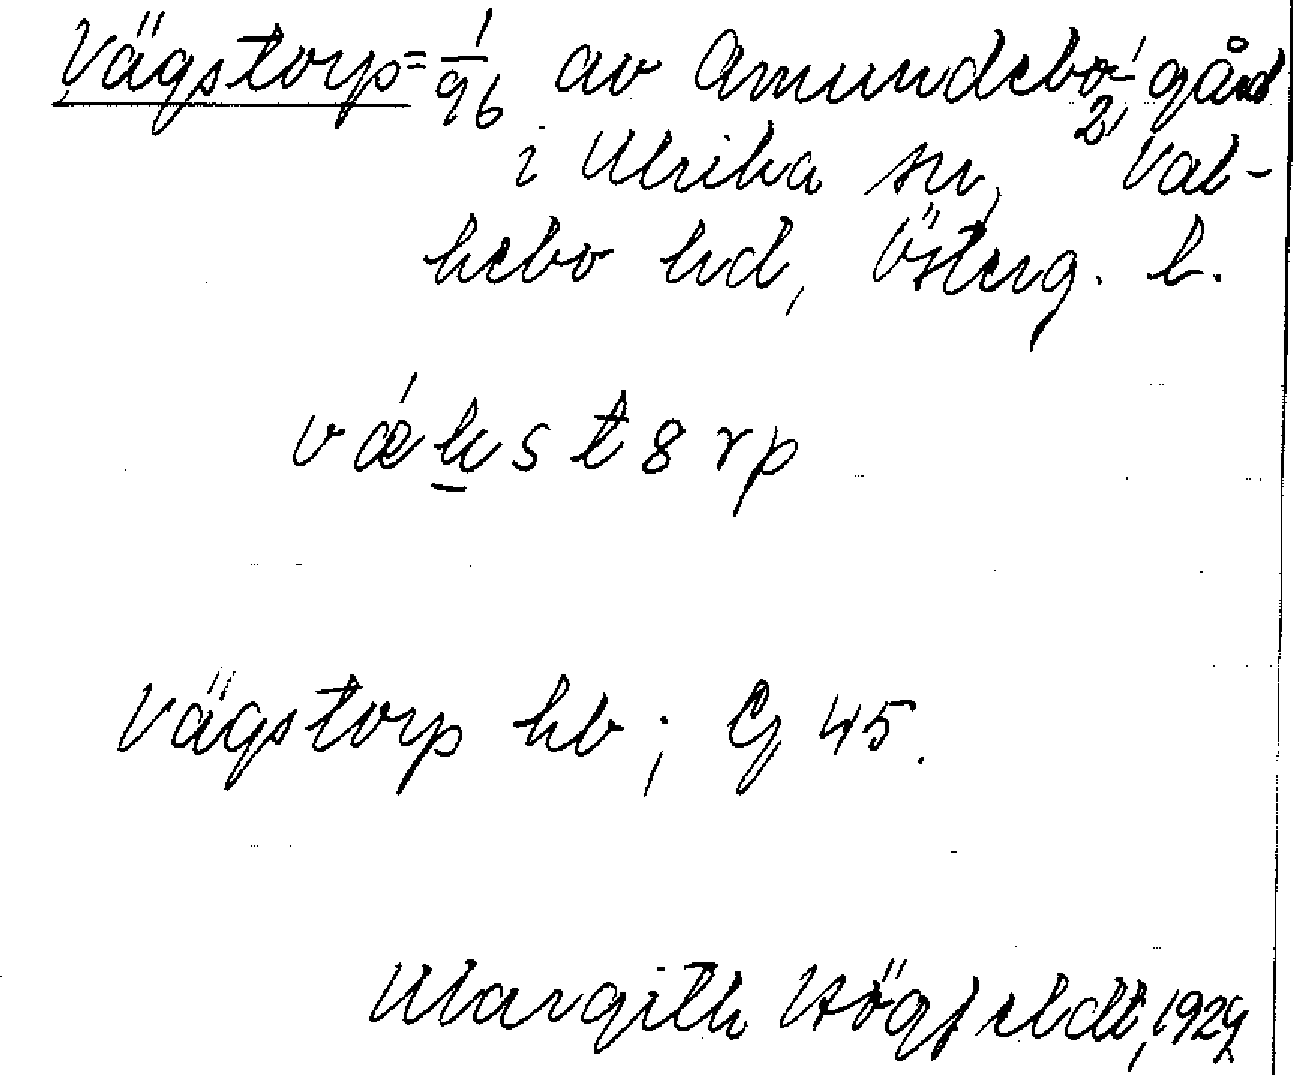 Vägstorp = 1/96 av Amundebo 1/2 gård
i Ulrika sn, Val-
kebo hd, Österg. l.
vǽkst8rp
Vägstorp hb; Cg 45.
Margith Högfeldt, 1929